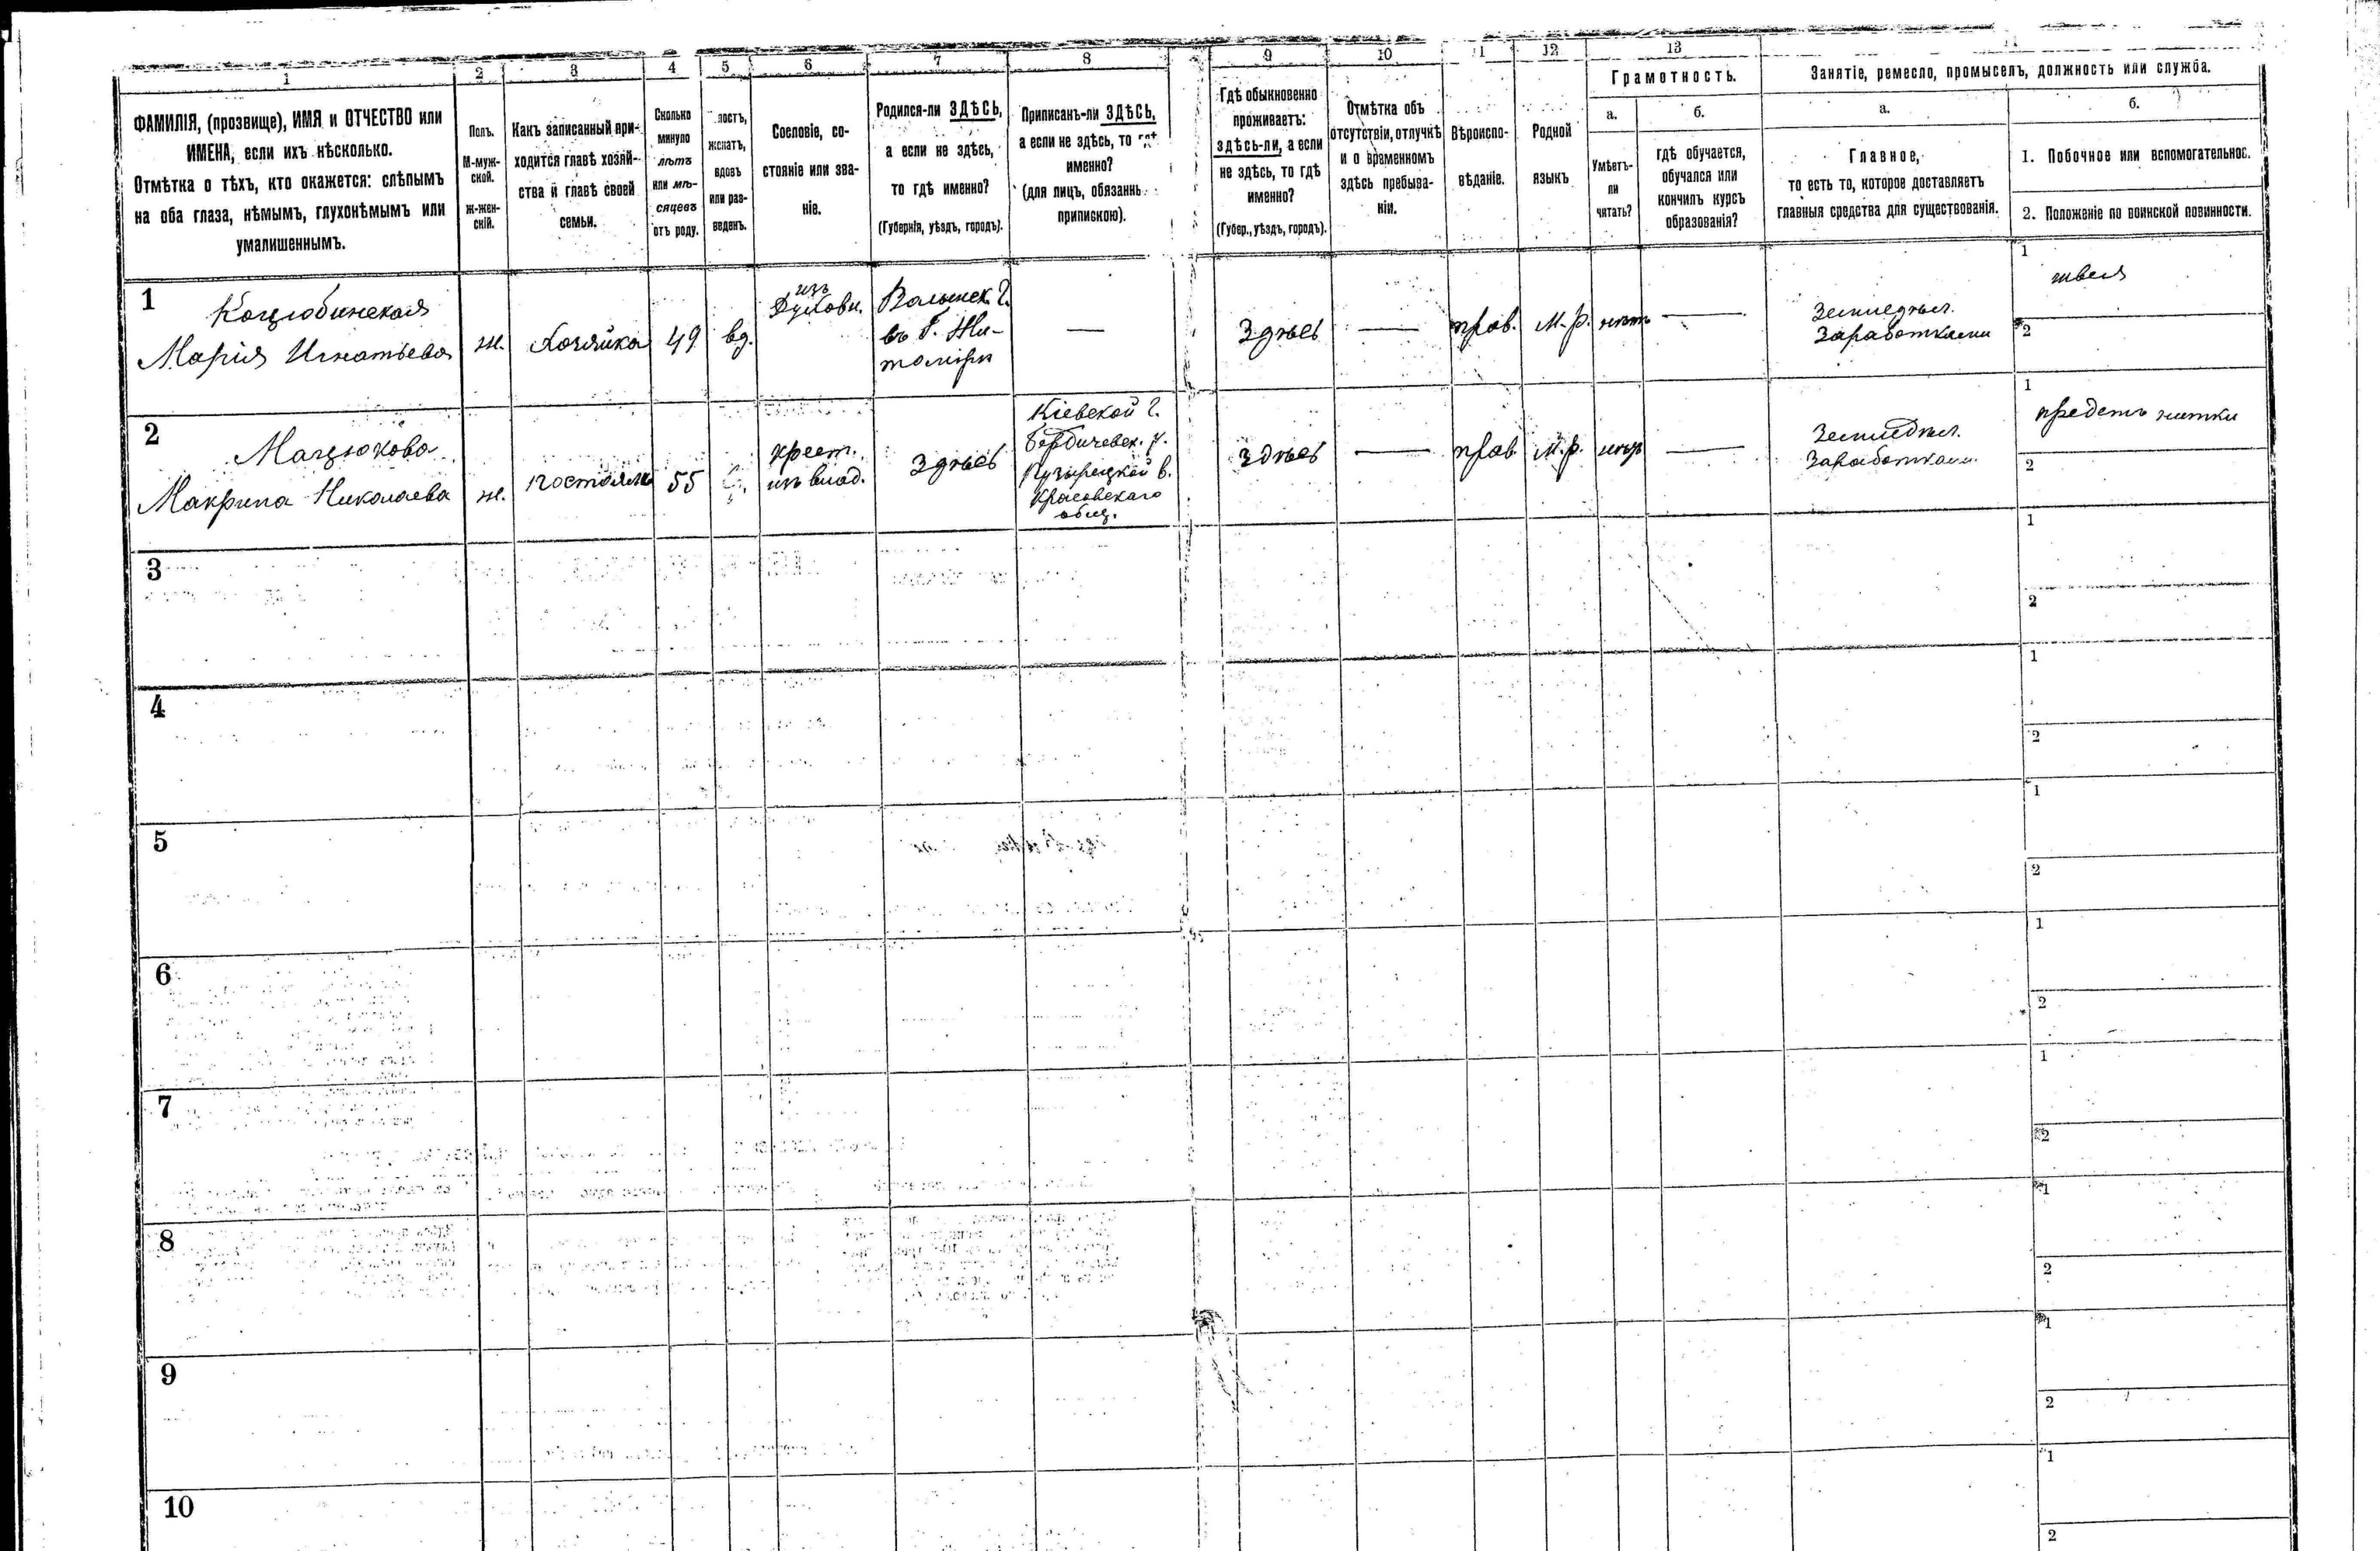 1 2 3 4 5 6 7 8 9 10 11 12 13
ФАМИЛІЯ, (прозвище), ИМЯ и ОТЧЕСТВО или
ИМЕНА, если ихъ нѣсколько.
Отмѣтка о тѣхъ, кто окажется: слѣпымъ
на оба глаза, нѣмымъ, глухонѣмымъ или
умалишеннымъ.
Полъ.
М-муж-
ской.
Ж-жен-
скій.
Какъ записанный при-
ходится главѣ хозяй-
ства и главѣ своей
семьи.
Сколько
минуло
лѣтъ
или мѣ-
сяцевъ
отъ роду.
лостъ,
женатъ,
вдовъ
или раз-
веденъ.
Сословіе, со-
стояніе или зва-
ніе.
Родился-ли ЗДѢСЬ,
а если не здѣсь,
то гдѣ именно?
(Губернія, уѣздъ, городъ).
Приписанъ-ли ЗДѢСЬ,
а если не здѣсь, то гдѣ
именно?
(для лицъ, обязанн
припискою).
Гдѣ обыкновенно
проживаетъ:
здѣсь-ли, а если
не здѣсь, то гдѣ
именно?
(Губер., уѣздъ, городъ).
Отмѣтка объ
отсутствіи, отлучкѣ
и о временномъ
здѣсь пребыва-
ніи.
Вѣроиспо-
вѣданіе.
Родной
языкъ
Грамотность.
а.
Умѣетъ-
ли
читать?
б.
гдѣ обучается,
обучался или
кончилъ курсъ
образованія?
Занятіе, ремесло, промыселъ, должность или служба.
а.
Главное,
то есть то, которое доставляетъ
главныя средства для существованія.
б.
1. Побочное или вспомогательное.
2. Положеніе по воинской повинности.
1
Коцюбинская
Марія Игнатьева
ж.
Хозяйка
49
вд.
изъ
Духовн.
Волынск. Г.
въ г. Жи-
томірѣ
—
Здѣсь
—
прав.
М.-р.
нѣтъ
—
Земледѣл.
Заработками
1 швея
2
2
Мацюкова
Макрина Николаева
ж.
постоял.
55
крест.
изъ влад.
Здѣсь
Кіевской г.
Бердичевск. у.
Пузырецкой в.
Красовскаго
общ.
Здѣсь
—
прав
М.р.
—
Земледѣл.
Заработками
1 прядетъ нитки
2
3
1
2
4
1
2
5
1
2
6
1
2
7
1
2
8
1
2
9
1
2
10
1
2